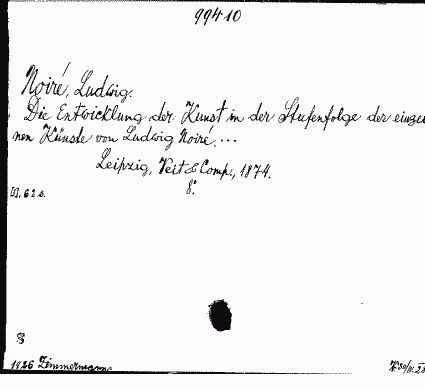 99410
Noiré, Ludwig.
Die Entwicklung der Kunst in der Stufenfolge der einzel
nen Künste von Ludwig Noiré...
Leipzig, Veit & Comp., 1874.
8°.
62 s.
1926 Zimmermann